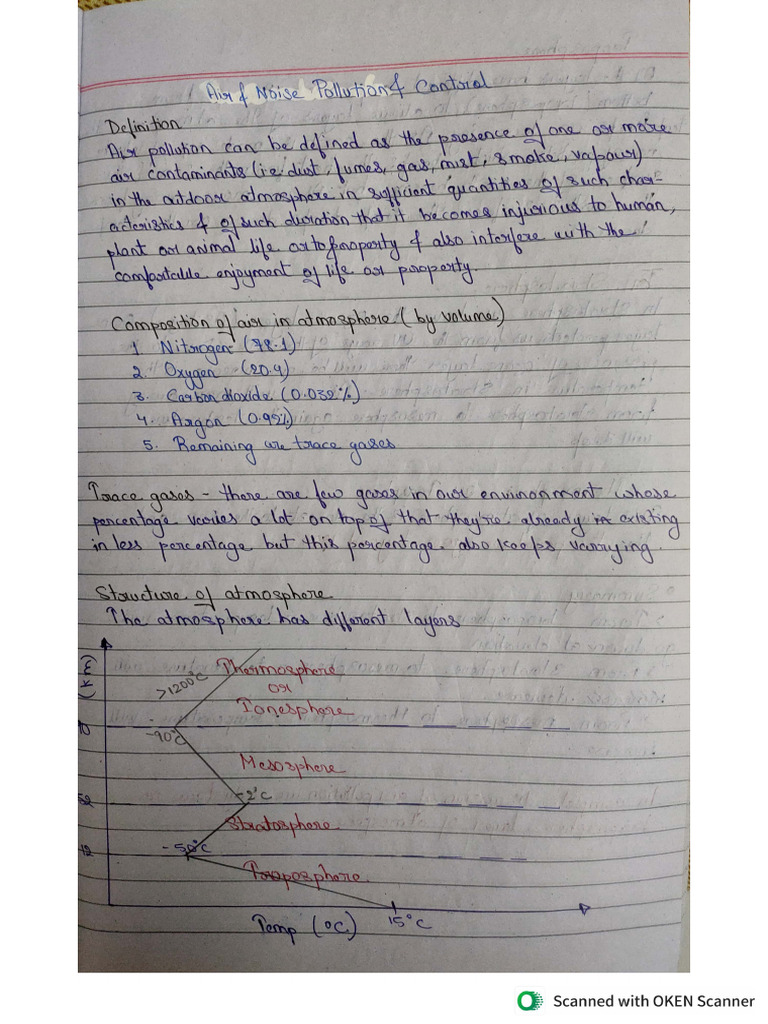 Air & Noise Pollution & Control
Definition
Air pollution can be defined as the presence of one or more
air contaminants (i.e dust, fumes, gas, mist, smoke, vapour)
in the outdoor atmosphere in sufficient quantities of such char-
acteristics & of such duration that it becomes injurious to human,
plant or animal life or to property & also interfere with the
comfortable enjoyment of life or property.
Composition of air in atmosphere (by volume)
1 Nitrogen (78.1)
2. Oxygen (20.9)
3. Carbon dioxide (0.032%)
4. Argon (0.95%)
5. Remaining are trace gases
Trace gases - there are few gases in our environment whose
percentage varies a lot on top of that they're already in existing
in less percentage but this percentage also keeps varrying.
Structure of atmosphere
The atmosphere has different layers
(km)
>1200°C
Thermosphere
or
Ionesphere
-90°C
Mesosphere
52
-2°C
Stratosphere
12
-50°C
Troposphere
15°C
Temp (°C)
Scanned with OKEN Scanner